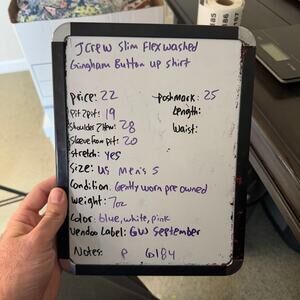 JCrew Slim Flex washed
Gingham Button up shirt
price: 22
poshmark: 25
Pit 2 pit: 19
Length:
Shoulder 2 Hem: 28
Waist:
Sleeve from pit: 20
stretch: yes
Size: US Men's S
Condition: Gently worn pre owned
Weight: 7oz
Color: blue, white, pink
Vendoo Label: GW September
Notes: P 6184